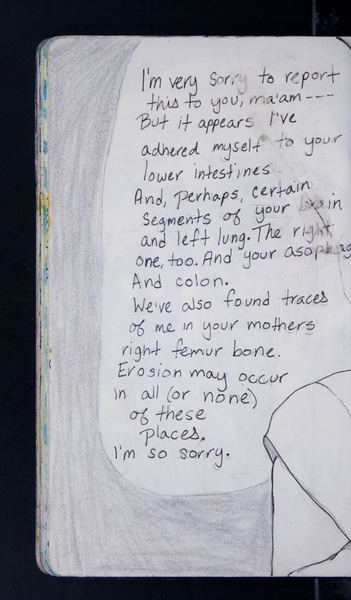 I'm very sorry to report
this to you, ma'am ---
But it appears I've
adhered myself to your
lower intestines.
And, perhaps, certain
segments of your brain
and left lung. The right
one, too. And your
And colon.
We've also found traces
of me in your mothers
right femur bone.
Erosion may occur
in all (or none)
of these
places.
I'm so sorry.